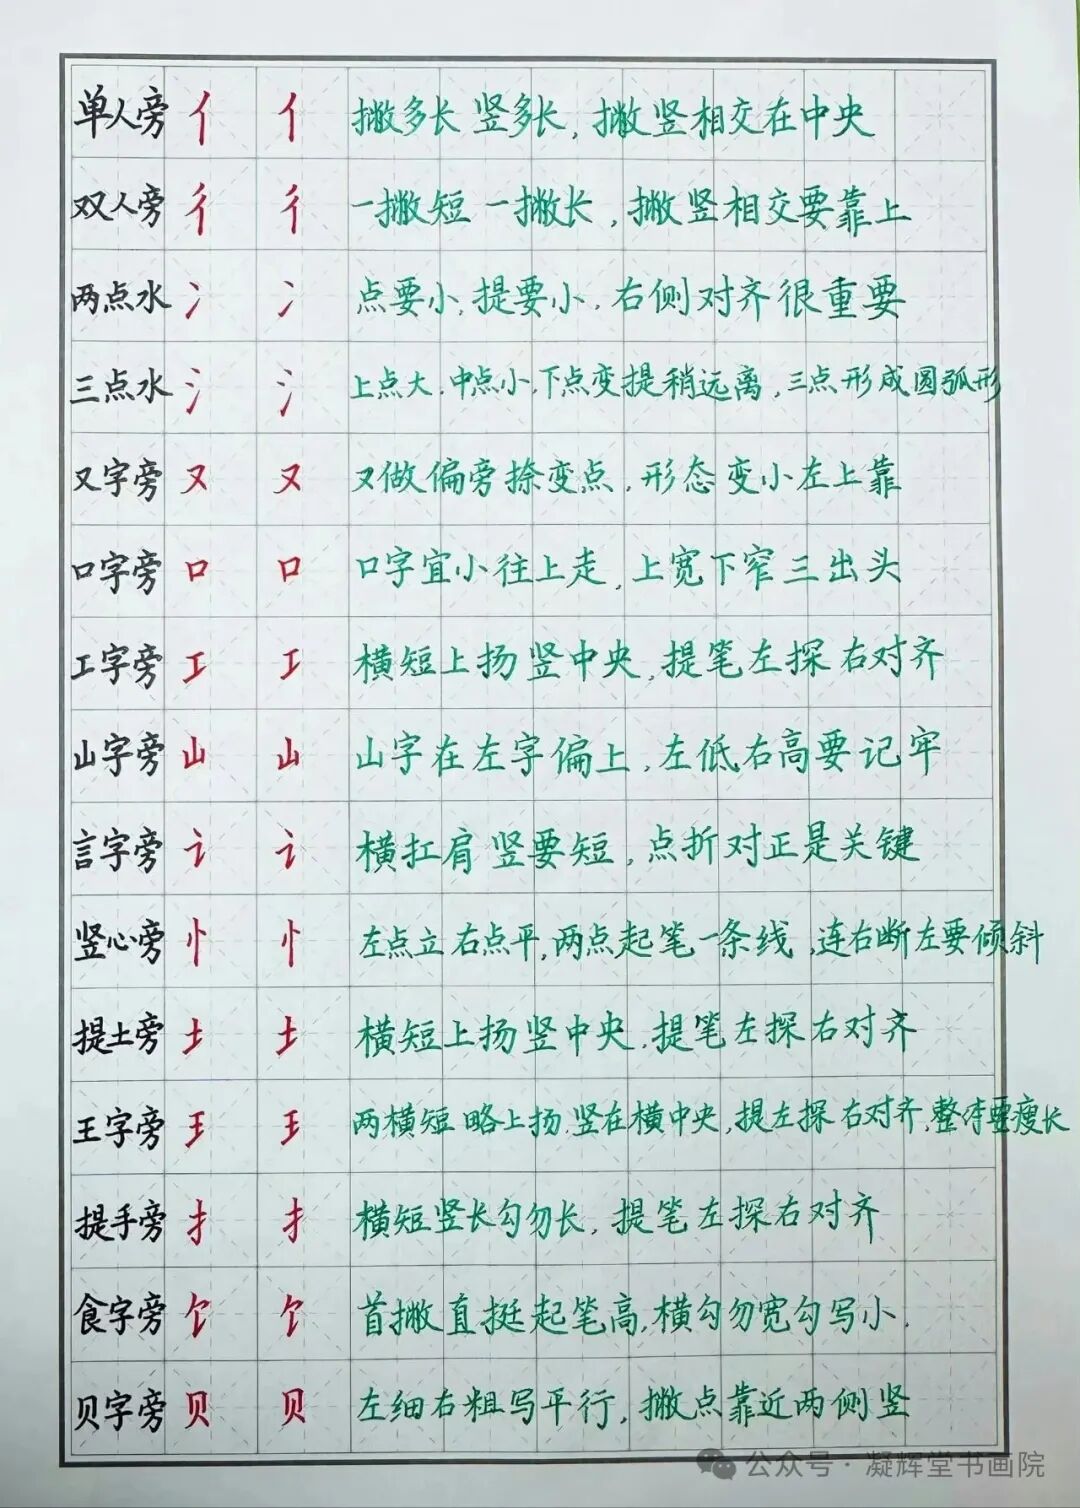 单人旁 亻 亻 撇多长竖多长，撇竖相交在中央
双人旁 彳 彳 一撇短一撇长，撇竖相交要靠上
两点水 冫 冫 点要小，提要小，右侧对齐很重要
三点水 氵 氵 上点大，中点小，下点变提稍远离，三点形成圆弧形
又字旁 又 又 又做偏旁捺变点，形态变小左上靠
口字旁 口 口 口字宜小往上走，上宽下窄三出头
工字旁 工 工 横短上扬竖中央，提笔左探右对齐
山字旁 山 山 山字在左字偏上，左低右高要记牢
言字旁 讠 讠 横扛肩竖要短，点折对正是关键
竖心旁 忄 忄 左点立右点平，两点起笔一条线，连右断左要倾斜
提土旁 土 土 横短上扬竖中央，提笔左探右对齐
王字旁 王 王 两横短略上扬，竖在横中央，提左探右对齐，整体要瘦长
提手旁 扌 扌 横短竖长勾勿长，提笔左探右对齐
食字旁 饣 饣 首撇直挺起笔高，横勾勿宽勾写小.
贝字旁 贝 贝 左细右粗写平行，撇点靠近两侧竖
公众号·凝辉堂书画院